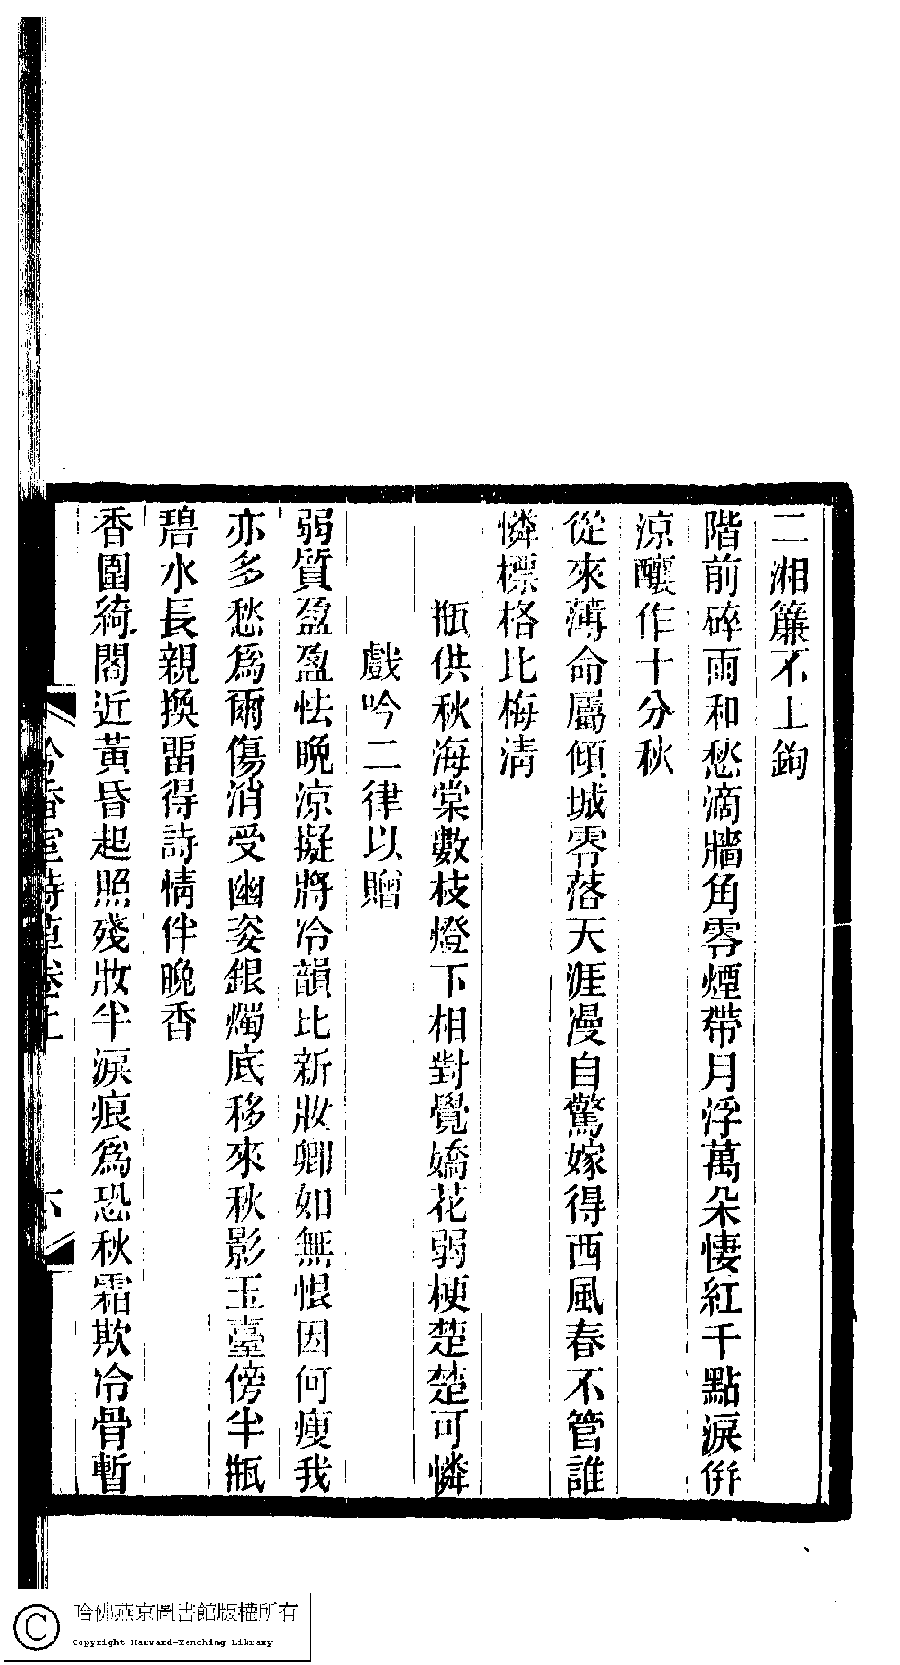 二湘簾不上鉤
階前碎雨和愁滴牆角零煙帶月浮萬朵悽紅千點淚併
涼釀作十分秋
從來薄命屬傾城零落天涯漫自驚嫁得西風春不管誰
憐標格比梅清
瓶供秋海棠數枝燈下相對覺嬌花弱梗楚楚可憐
戲吟二律以贈
弱質盈盈怯晚涼擬將冷韻比新妝卿如無恨因何瘦我
亦多愁為爾傷消受幽姿銀燭底移來秋影玉臺傍半瓶
碧水長親換畱得詩情伴晚香
香圍綺閣近黃昏起照殘妝半淚痕為恐秋霜欺冷骨暫
冷香室詩草卷上
六
哈佛燕京圖書館版權所有
Copyright Harvard-Yenching Library